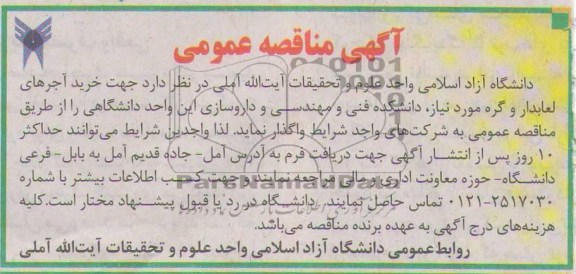 آگهی مناقصه عمومی
دانشگاه آزاد اسلامی واحد علوم و تحقیقات آیت‌الله آملی در نظر دارد جهت خرید آجرهای
لعابدار و گره مورد نیاز، دانشکده فنی و مهندسی و داروسازی این واحد دانشگاهی را از طریق
مناقصه عمومی به شرکت‌های واجد شرایط واگذار نماید. لذا واجدین شرایط می‌توانند حداکثر
۱۰ روز پس از انتشار آگهی جهت دریافت فرم به آدرس آمل- جاده قدیم آمل به بابل- فرعی
دانشگاه- حوزه معاونت اداری و مالی مراجعه نمایند و جهت کسب اطلاعات بیشتر با شماره
۰۱۲۱-۲۵۱۷۰۳۰ تماس حاصل نمایند. دانشگاه در رد یا قبول پیشنهاد مختار است. کلیه
هزینه‌های درج آگهی به عهده برنده مناقصه می‌باشد.
روابط‌عمومی دانشگاه آزاد اسلامی واحد علوم و تحقیقات آیت‌الله آملی
ParsNamadData